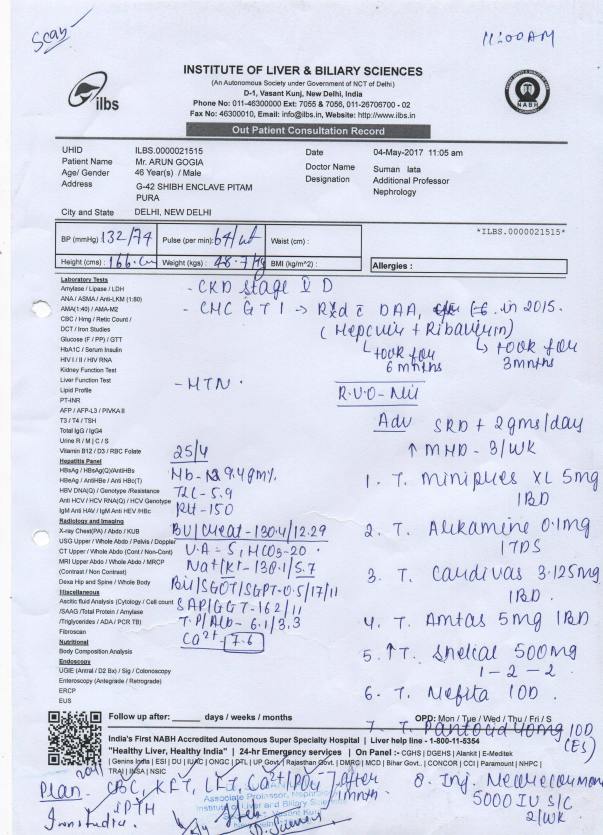 Scan
11:00AM
INSTITUTE OF LIVER & BILIARY SCIENCES
(An Autonomous Society under Government of NCT of Delhi)
D-1, Vasant Kunj, New Delhi, India
Phone No: 011-46300000 Ext: 7055 & 7056, 011-26706700 - 02
Fax No: 46300010, Email: info@ilbs.in, Website: http://www.ilbs.in
ilbs
NABH
Out Patient Consultation Record
UHID ILBS.0000021515
Patient Name Mr. ARUN GOGIA
Age/ Gender 46 Year(s) / Male
Address G-42 SHIBH ENCLAVE PITAM
PURA
City and State DELHI, NEW DELHI
Date 04-May-2017 11:05 am
Doctor Name Suman lata
Designation Additional Professor
Nephrology
*ILBS.0000021515*
BP (mmHg) 132/74 Pulse (per min): 64/ Waist (cm) :
Height (cms) : 166.cm Weight (kgs) : 48.7 kg BMI (kg/m^2) :
Allergies :
Laboratory Tests
Amylase / Lipase / LDH
ANA / ASMA / Anti-LKM (1:80)
AMA(1:40) / AMA-M2
CBC / Hmg / Retic Count /
DCT / Iron Studies
Glucose (F / PP) / GTT
HbA1C / Serum Insulin
HIV I / II / HIV RNA
Kidney Function Test
Liver Function Test
Lipid Profile
PT-INR
AFP / AFP-L3 / PIVKA II
T3 / T4 / TSH
Total IgG / IgG4
Urine R / M | C / S
Vitamin B12 / D3 / RBC Folate
Hepatitis Panel
HBsAg / HBsAg(Q)/AntiHBs
HBeAg / AntiHBe / Anti HBc(T)
HBV DNA(Q) / Genotype /Resistance
Anti HCV / HCV RNA(Q) / HCV Genotype
IgM Anti HAV / IgM Anti HEV /HBc
Radiology and Imaging
X-ray Chest(PA) / Abdo / KUB
USG Upper / Whole Abdo / Pelvis / Doppler
CT Upper / Whole Abdo (Cont / Non-Cont)
MRI Upper Abdo / Whole Abdo / MRCP
(Contrast / Non Contrast)
Dexa Hip and Spine / Whole Body
Miscellaneous
Ascitic fluid Analysis (Cytology / Cell count
/SAAG /Total Protein / Amylase
/Triglycerides / ADA / PCR TB)
Fibroscan
Nutritional
Body Composition Analysis
Endoscopy
UGIE (Antral / D2 Bx) / Sig / Colonoscopy
Enteroscopy (Antegrade / Retrograde)
ERCP
EUS
- CKD Stage 5 D
- CHC GT 1 → Rxd c DAA, in 2015.
(Hepcvir + Ribavirin)
took for 6 months
took for 3 months
- HTN.
R.U.O - Nil
25/4
Hb - 9.4 gm%.
TLC - 5.9
Plt - 150
BU/Creat - 130.4/12.29
U.A - 5, HCO3-20.
Na+/K+ - 138.1/5.7
Bil/SGOT/SGPT-0.5/17/11
SAP/GGT-162/11
T.P/Alb - 6.1/3.3
Ca2+- 7.6
Adv SRD + 2gms/day
↑ MHD - 3/WK
1. T. Minipres XL 5mg
1BD
2. T. Alkamine 0.1mg
1TDS
3. T. Cardivas 3.125mg
1BD.
4. T. Amtas 5mg 1BD
5. ↑T. Shelcal 500mg
1 - 2 - 2
6. T. Nefita 1OD.
7. T. Pantocid 40mg 1OD
(ES)
8. Inj.
5000 IU S/C
2/WK
Follow up after: ______ days / weeks / months
OPD: Mon / Tue / Wed / Thu / Fri / S
India's First NABH Accredited Autonomous Super Specialty Hospital | Liver help line - 1-800-11-5354
"Healthy Liver, Healthy India" | 24-hr Emergency services | On Panel :- CGHS | DGEHS | Alankit | E-Meditek
| Genins India | ESI | DU | IUAC | ONGC | DTL | UP Govt | Rajasthan Govt. | DMRC | MCD | Bihar Govt. | CONCOR | CCI | Paramount | NHPC |
TRAI | INSA | NSIC
Plan - CBC, KFT, LFT, Ca2+/PO4 - after
1 month.
iPTH
Iron studies.
Associate Professor, Nephrology
Institute of Liver and Biliary Sciences